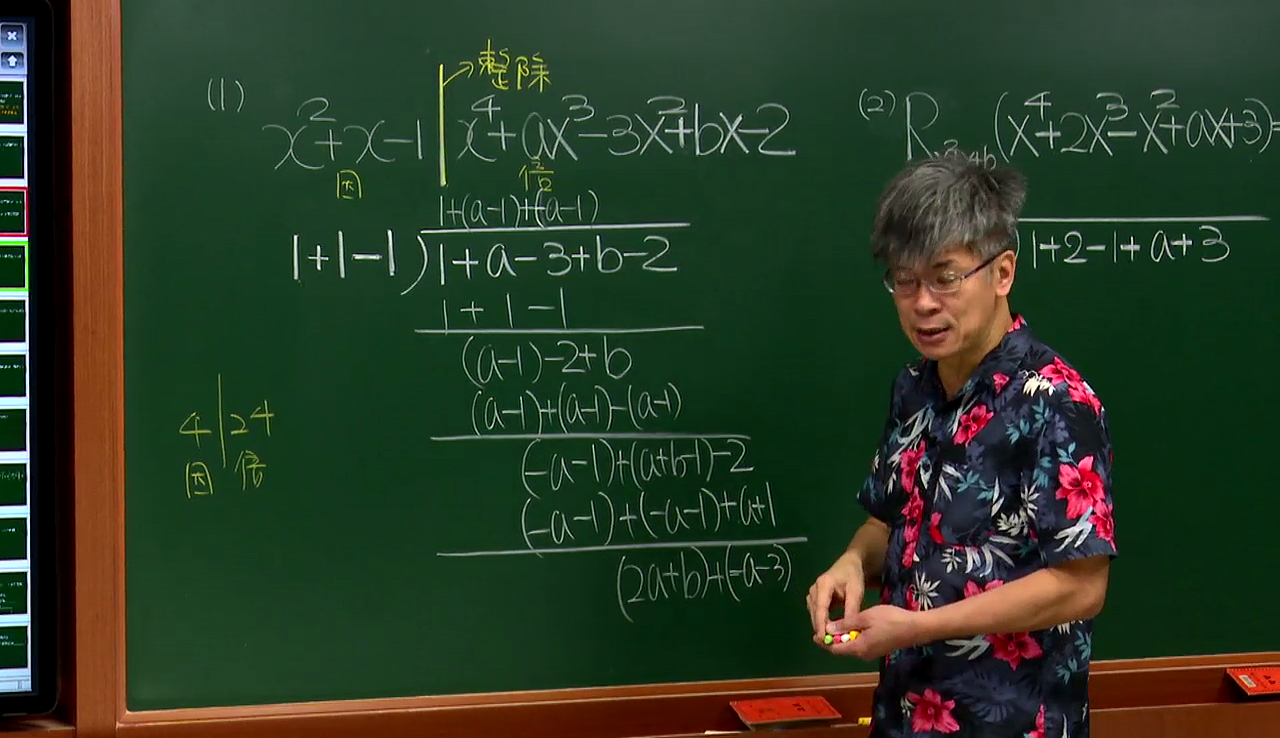 整除
(1) x²+x-1 | x⁴+ax³-3x²+bx-2
因 倍
1+(a-1)+(-a-1)
1+1-1)1+a-3+b-2
1+1-1
(a-1)-2+b
(a-1)+(a-1)-(a-1)
(-a-1)+(a+b-1)-2
(-a-1)+(-a-1)+a+1
(2a+b)+(-a-3)
4|24
因 倍
(2) R (x⁴+2x³-x²+ax+3)=
1+2-1+a+3